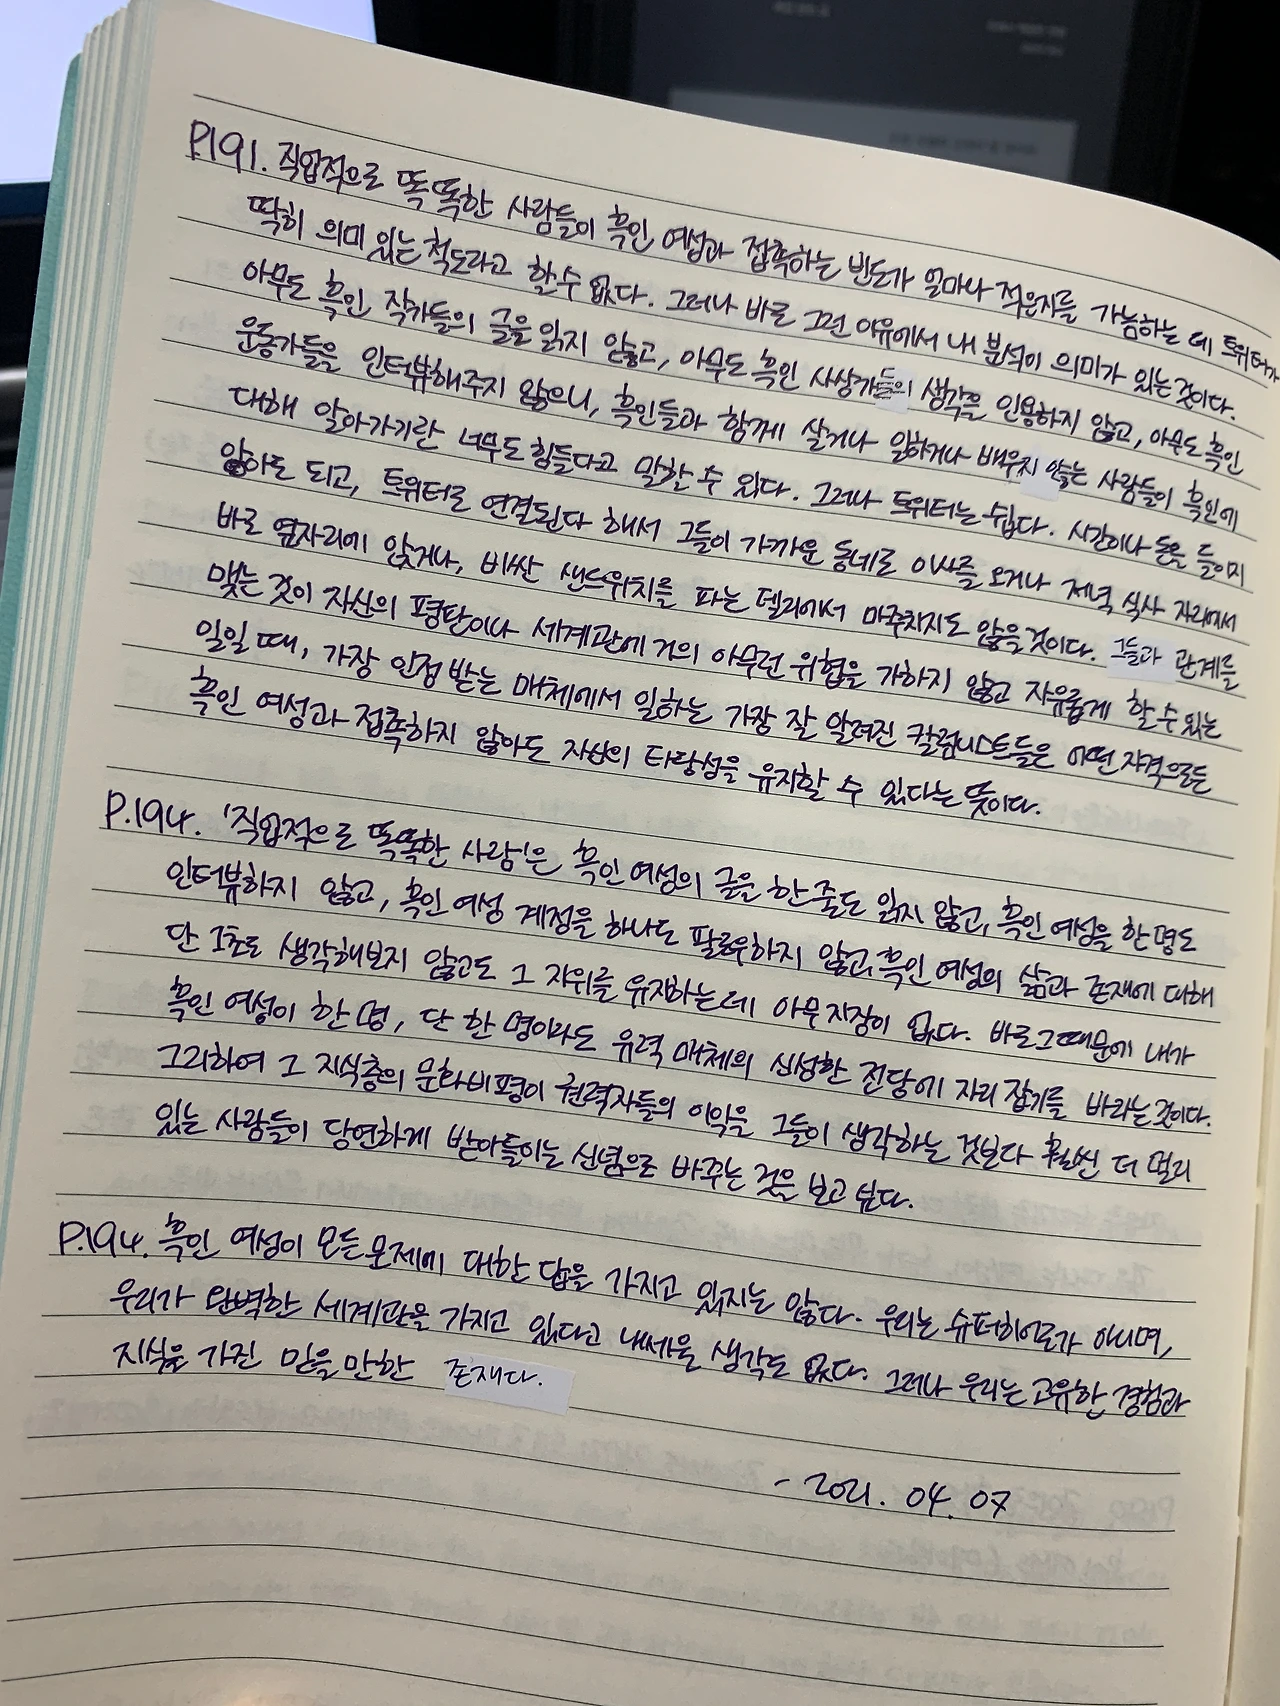 P.191. 직업적으로 똑똑한 사람들이 흑인 여성과 접촉하는 빈도가 얼마나 적은지를 가늠하는 데 트위터가
딱히 의미 있는 척도라고 할 수 없다. 그러나 바로 그런 이유에서 내 분석이 의미가 있는 것이다.
아무도 흑인 작가들의 글을 읽지 않고, 아무도 흑인 사상가들의 생각을 인용하지 않고, 아무도 흑인
운동가들을 인터뷰해주지 않으니, 흑인들과 함께 살거나 일하거나 배우지 않는 사람들이 흑인에
대해 알아가기란 너무도 힘들다고 말할 수 있다. 그러나 트위터는 쉽다. 시간이나 돈을 들이지
않아도 되고, 트위터로 연결된다 해서 그들이 가까운 동네로 이사를 오거나 저녁 식사 자리에서
바로 옆자리에 앉거나, 비싼 샌드위치를 파는 델리에서 마주치지도 않을 것이다. 그들과 관계를
맺는 것이 자신의 평판이나 세계관에 거의 아무런 위협을 가하지 않고 자유롭게 할 수 있는
일일 때, 가장 인정 받는 매체에서 일하는 가장 잘 알려진 칼럼니스트들은 어떤 자격으로든
흑인 여성과 접촉하지 않아도 자신의 타당성을 유지할 수 있다는 뜻이다.
P.194. '직업적으로 똑똑한 사람'은 흑인 여성의 글을 한 줄도 읽지 않고, 흑인 여성을 한 명도
인터뷰하지 않고, 흑인 여성 계정을 하나도 팔로우하지 않고, 흑인 여성의 삶과 존재에 대해
단 1초도 생각해보지 않고도 그 지위를 유지하는데 아무 지장이 없다. 바로 그 때문에 내가
흑인 여성이 한 명, 단 한 명이라도 유력 매체의 신성한 전당에 자리 잡기를 바라는 것이다.
그리하여 그 지식층의 문화비평이 권력자들의 이익을 그들이 생각하는 것보다 훨씬 더 멀리
있는 사람들이 당연하게 받아들이는 신념으로 바꾸는 것을 보고 싶다.
P.194. 흑인 여성이 모든 문제에 대한 답을 가지고 있지는 않다. 우리는 슈퍼히어로가 아니며,
우리가 완벽한 세계관을 가지고 있다고 내세울 생각도 없다. 그러나 우리는 고유한 경험과
지식을 가진 믿을 만한 존재다.
- 2021. 04. 07